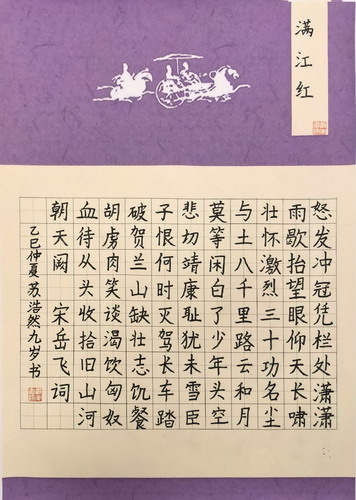 满江红
怒发冲冠凭栏处潇潇
雨歇抬望眼仰天长啸
壮怀激烈三十功名尘
与土八千里路云和月
莫等闲白了少年头空
悲切靖康耻犹未雪臣
子恨何时灭驾长车踏
破贺兰山缺壮志饥餐
胡虏肉笑谈渴饮匈奴
血待从头收拾旧山河
朝天阙 宋岳飞词
乙巳仲夏苏浩然九岁书